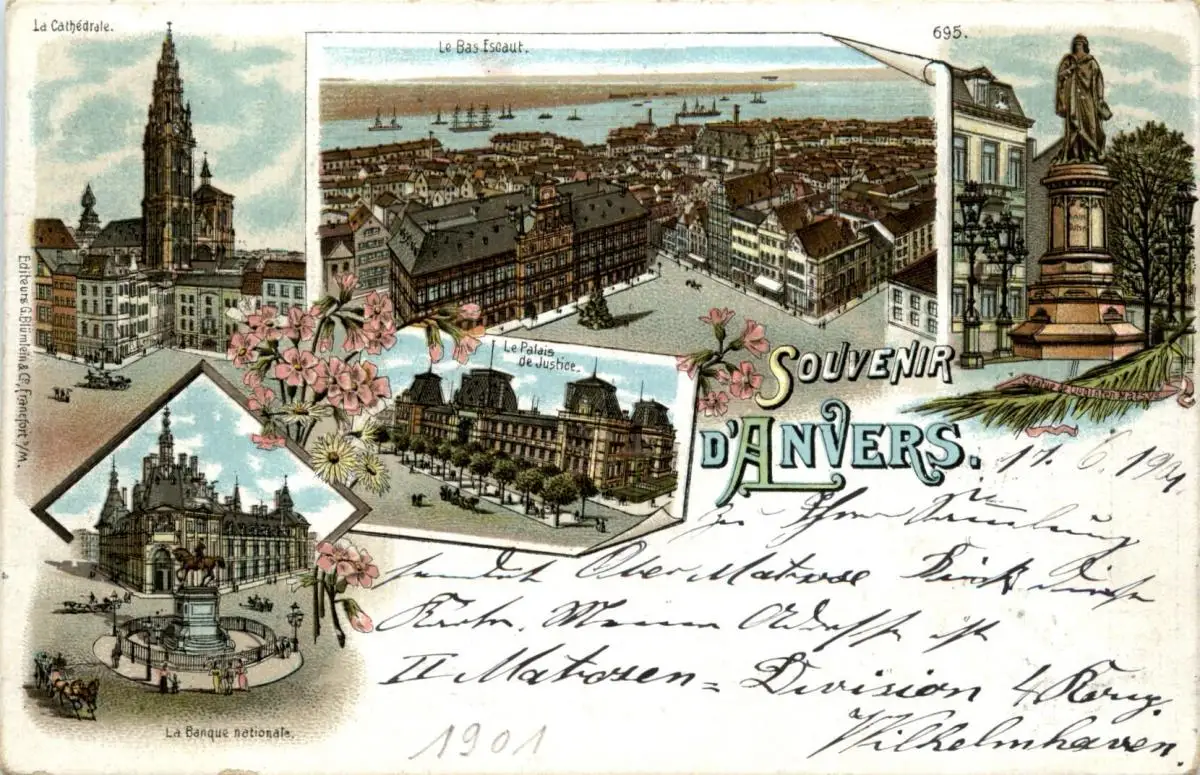 La Cathédrale.
Le Bas Escaut.
695.
Editeurs G. Blümlein & Co, Francfort s/M.
Le Palais
de Justice.
SOUVENIR
D'ANVERS.
La Banque nationale.
17. 6. 1901
zu Ihrer
sendet Ober Matrose
Karte. Meine Adresse ist
II Matrosen = Division 4 Komp.
Wilhelmshaven.
1901